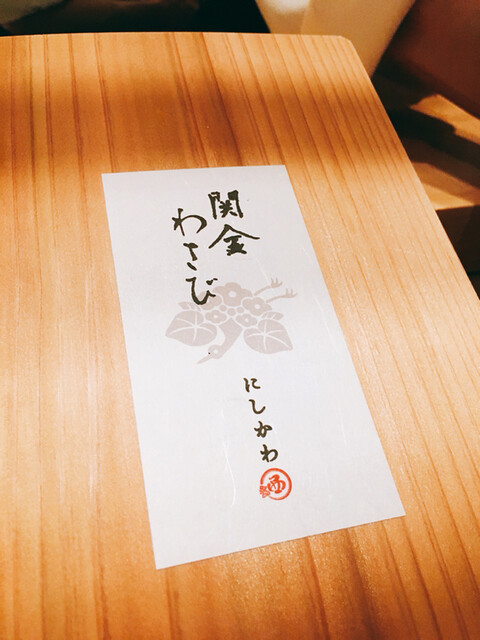 関金
わさび
にしかわ